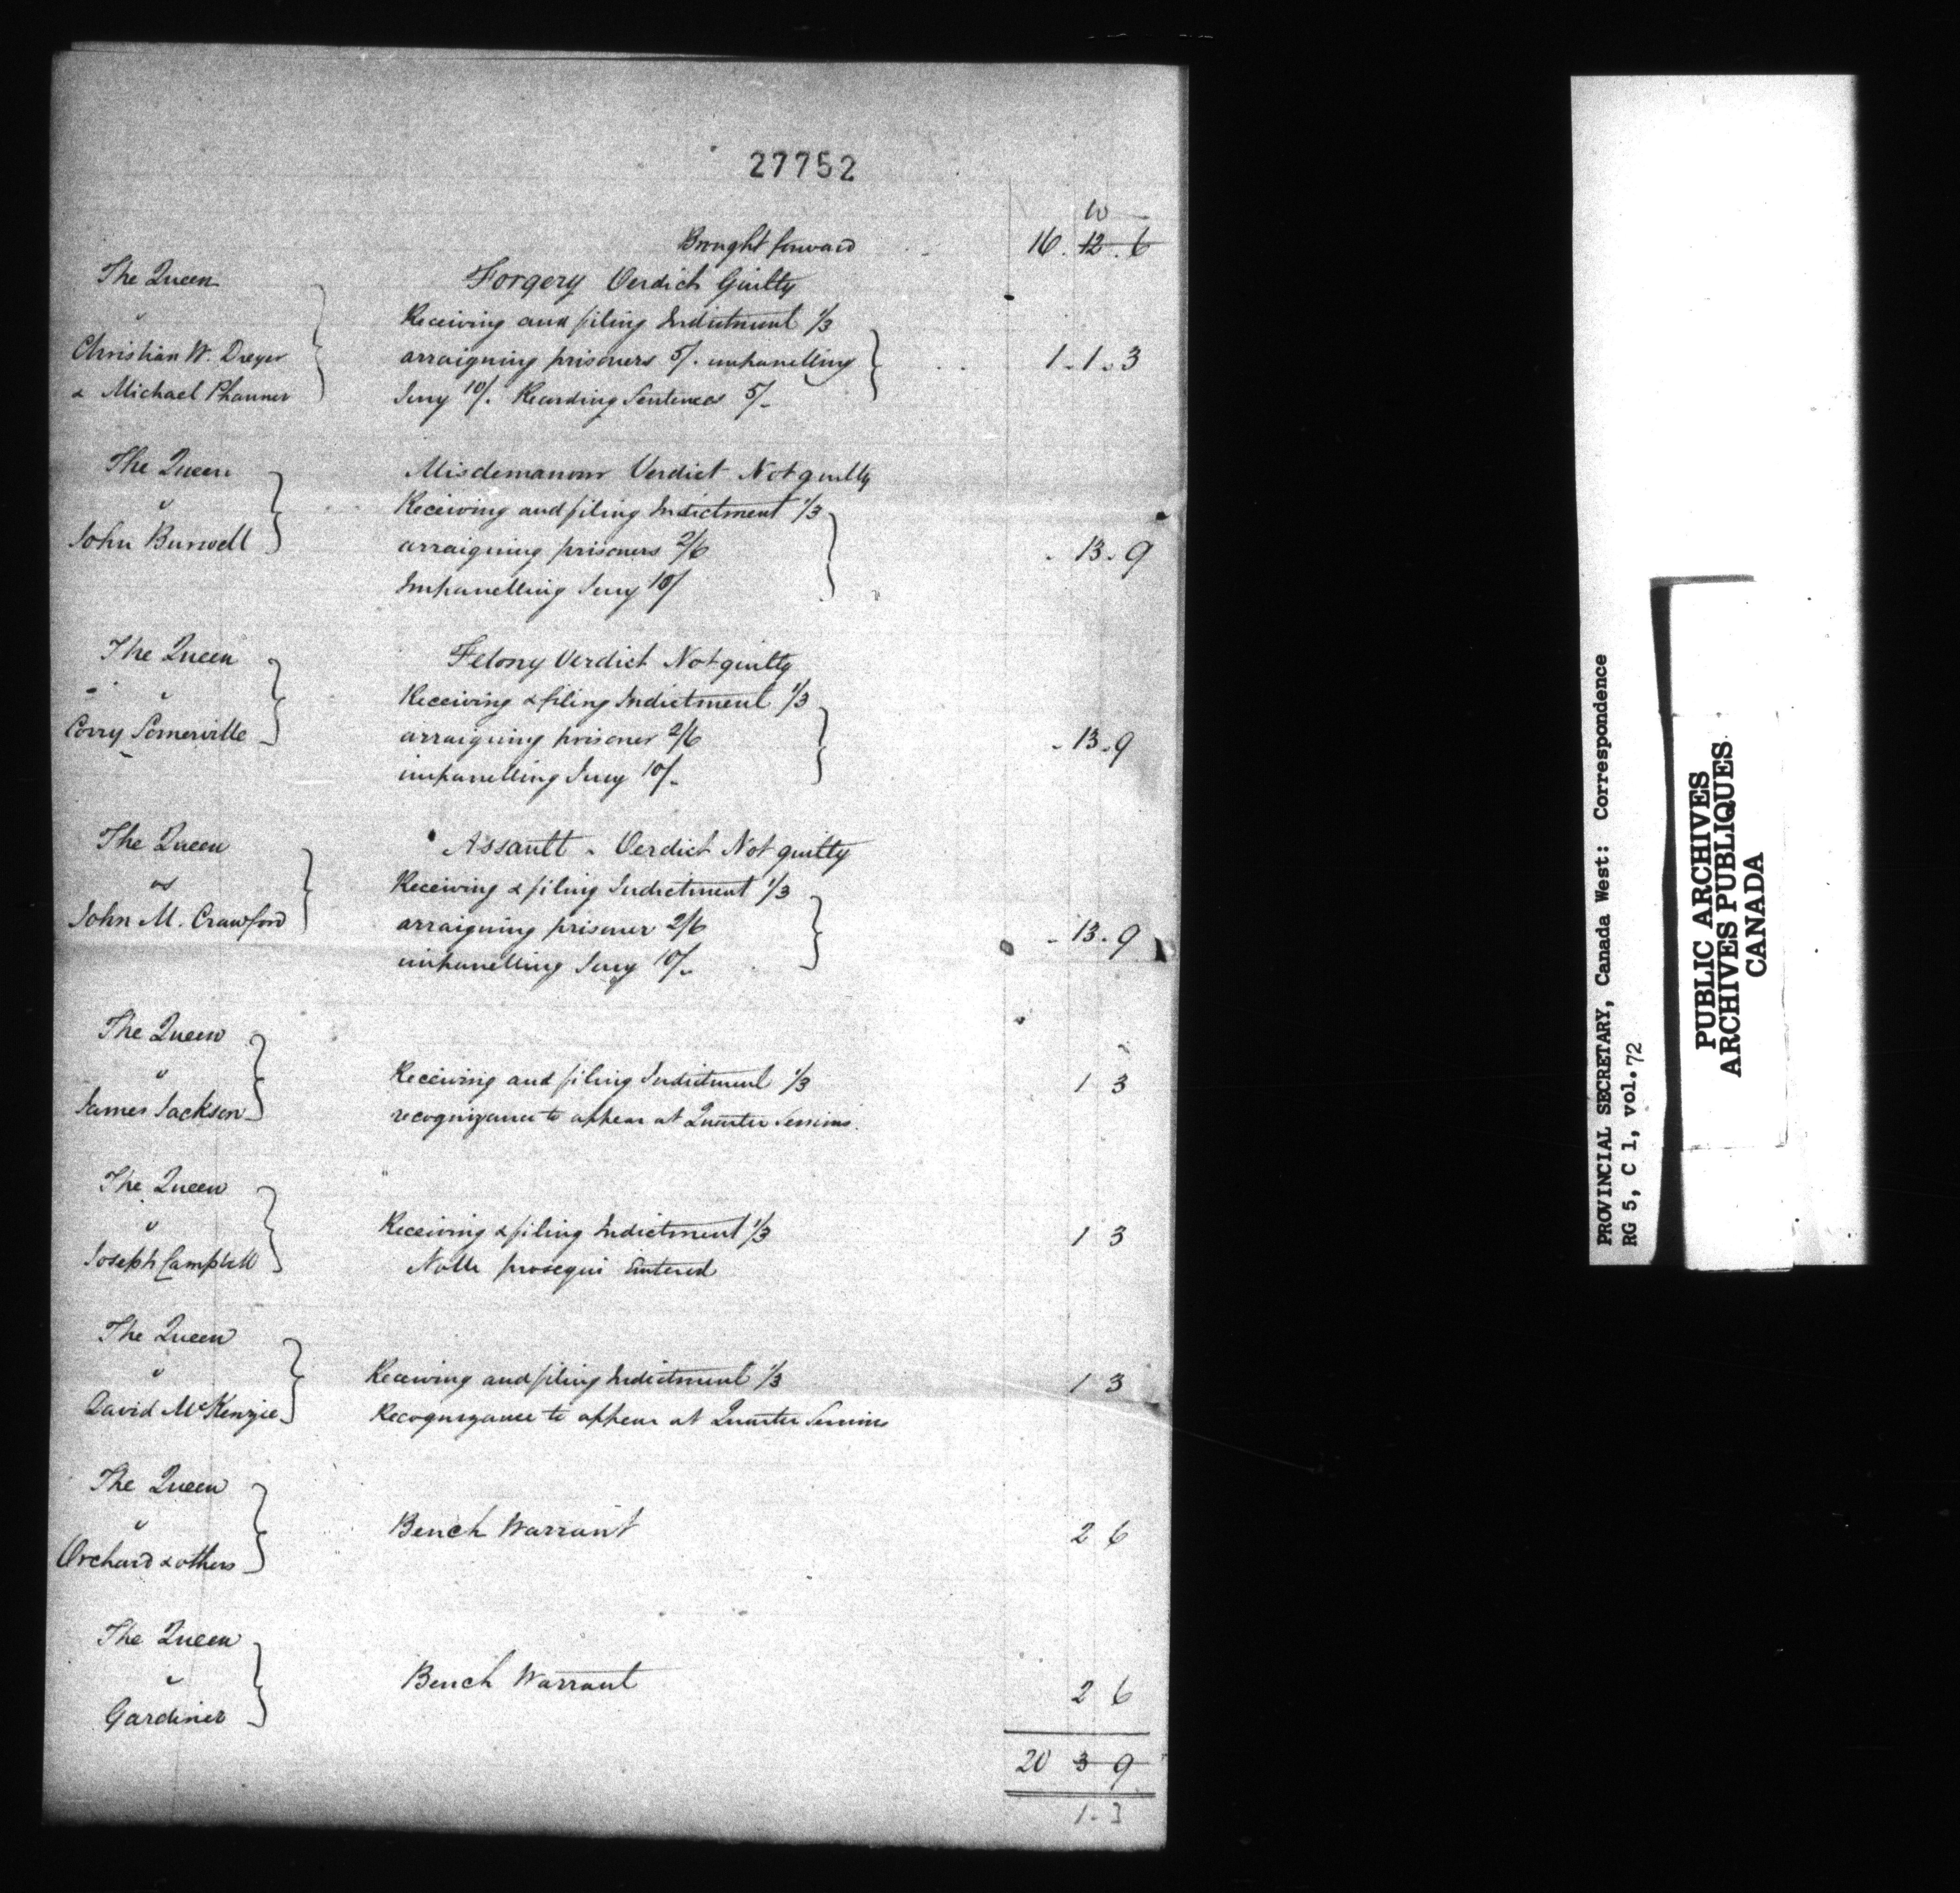 27752
10 —
Brought forward 16 . 12 . 6
The Queen Forgery Verdict Guilty
" Receiving and filing Indictment 1/3
Christian W. Dreyer arraigning prisoners 5/. impanelling 1 . 1 . 3
& Michael Phanner Jury 10/. Recording Sentences 5/-
The Queen Misdemanour Verdict Not guilty
" Receiving and filing Indictment 1/3
John Burwell arraigning prisoners 2/6 13 . 9
Impanelling Jury 10/
The Queen Felony Verdict Not guilty
" Receiving & filing Indictment 1/3
Corry Somerville arraigning prisoner 2/6 13 . 9
impanelling Jury 10/-
The Queen Assault - Verdict Not guilty
vs Receiving & filing Indictment 1/3
John M. Crawford arraigning prisoner 2/6 13 . 9
impanelling Jury 10/-
The Queen
" Receiving and filing Indictment 1/3 1 3
James Jackson recognizance to appear at Quarter Sessions.
The Queen
" Receiving & filing Indictment 1/3 1 3
Joseph Campbell Nolle prosequi Entered
The Queen
" Receiving and filing Indictment 1/3 1 3
David McKenzie Recognizance to appear at Quarter Sessions
The Queen
" Bench Warrant 2 6
Orchard & others
The Queen
" Bench Warrant 2 6
Gardiner
20 3 9
1 - 3
PROVINCIAL SECRETARY, Canada West: Correspondence
RG 5, C 1, vol. 72
PUBLIC ARCHIVES
ARCHIVES PUBLIQUES
CANADA